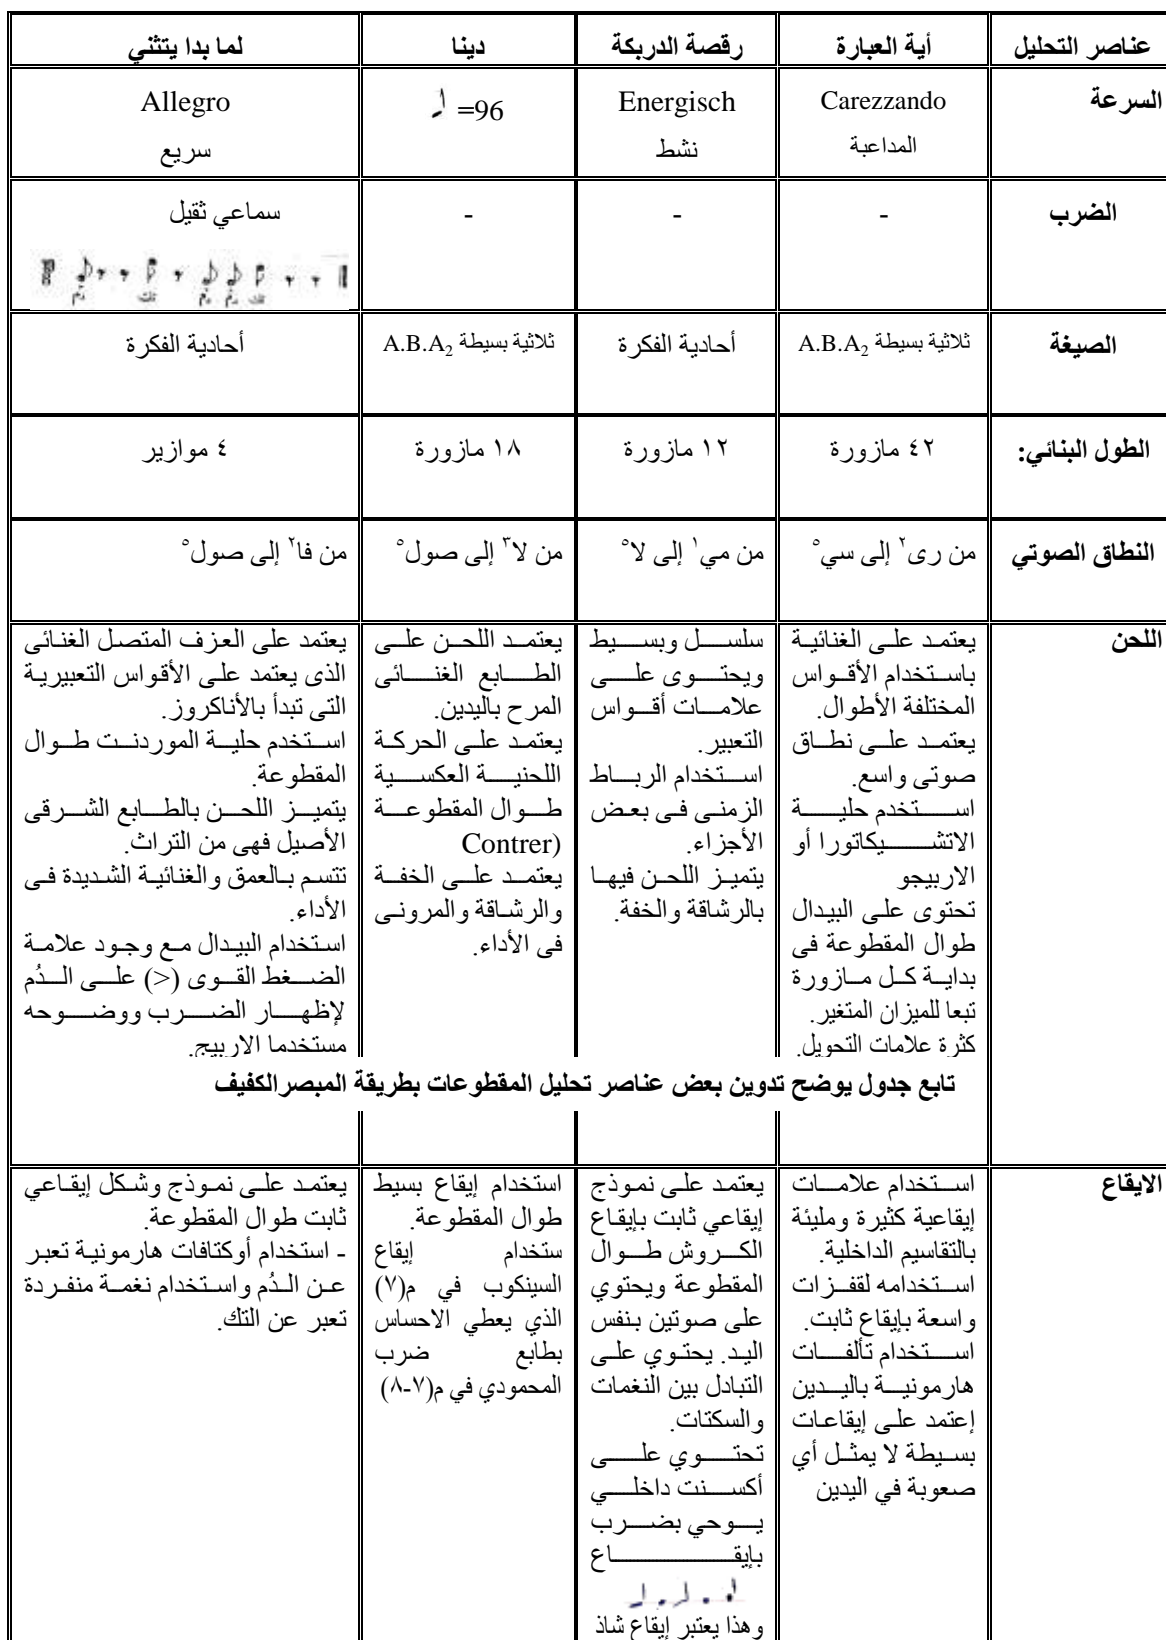 عناصر التحليل
أية العبارة
رقصة الدربكة
دينا
لما بدا يتثني
السرعة
Carezzando
المداعبة
Energisch
نشط
=96
Allegro
سريع
الضرب
-
-
-
سماعي ثقيل
الصيغة
ثلاثية بسيطة A.B.A₂
أحادية الفكرة
ثلاثية بسيطة A.B.A₂
أحادية الفكرة
الطول البنائي:
٤٢ مازورة
١٢ مازورة
١٨ مازورة
٤ موازير
النطاق الصوتي
من رى٢ إلى سي٥
من مي١ إلى لا٥
من لا٣ إلى صول٥
من فا٢ إلى صول٥
اللحن
يعتمد على الغنائية
باستخدام الأقواس
المختلفة الأطوال.
يعتمد على نطاق
صوتى واسع.
استخدم حلية
الاتشيكاتورا أو
الاربيجو
تحتوى على البيدال
طوال المقطوعة فى
بداية كل مازورة
تبعا للميزان المتغير.
كثرة علامات التحويل.
سلسل وبسيط
ويحتوى على
علامات أقواس
التعبير.
استخدام الرباط
الزمنى فى بعض
الأجزاء.
يتميز اللحن فيها
بالرشاقة والخفة.
يعتمد اللحن على
الطابع الغنائى
المرح باليدين.
يعتمد على الحركة
اللحنية العكسية
طوال المقطوعة
(Contrer
يعتمد على الخفة
والرشاقة والمرونى
فى الأداء.
يعتمد على العزف المتصل الغنائى
الذى يعتمد على الأقواس التعبيرية
التى تبدأ بالأناكروز.
استخدم حلية الموردنت طوال
المقطوعة.
يتميز اللحن بالطابع الشرقى
الأصيل فهى من التراث.
تتسم بالعمق والغنائية الشديدة فى
الأداء.
استخدام البيدال مع وجود علامة
الضغط القوى (<) على الدُم
لإظهار الضرب ووضوحه
مستخدما الاربيج.
تابع جدول يوضح تدوين بعض عناصر تحليل المقطوعات بطريقة المبصرالكفيف
الايقاع
استخدام علامات
إيقاعية كثيرة ومليئة
بالتقاسيم الداخلية.
استخدامه لقفزات
واسعة بإيقاع ثابت.
استخدام تألفات
هارمونية باليدين
إعتمد على إيقاعات
بسيطة لا يمثل أي
صعوبة في اليدين
يعتمد على نموذج
إيقاعي ثابت بإيقاع
الكروش طوال
المقطوعة ويحتوي
على صوتين بنفس
اليد. يحتوي على
التبادل بين النغمات
والسكتات.
تحتوي على
أكسنت داخلي
يوحي بضرب
بإيقاع
وهذا يعتبر إيقاع شاذ
استخدام إيقاع بسيط
طوال المقطوعة.
ستخدام إيقاع
السينكوب في م(٧)
الذي يعطي الاحساس
بطابع ضرب
المحمودي في م(٧-٨)
يعتمد على نموذج وشكل إيقاعي
ثابت طوال المقطوعة.
- استخدام أوكتافات هارمونية تعبر
عن الدُم واستخدام نغمة منفردة
تعبر عن التك.